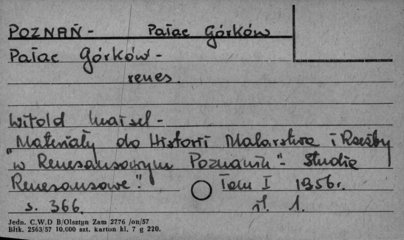 POZNAŃ - Pałac Górków
Pałac Górków -
renes.
Witold Maisel -
"Materiały do Historii Malarstwa i Rzeźby
"w Renesansowym Poznaniu" - Studia
Renesansowe" Tom I 1956r.
s. 366. il. 1.
Jedn. C.W.D B/Olsztyn Zam 2776 /on/57
Bltk. 2563/57 10.000 szt. karton kl. 7 g 220.